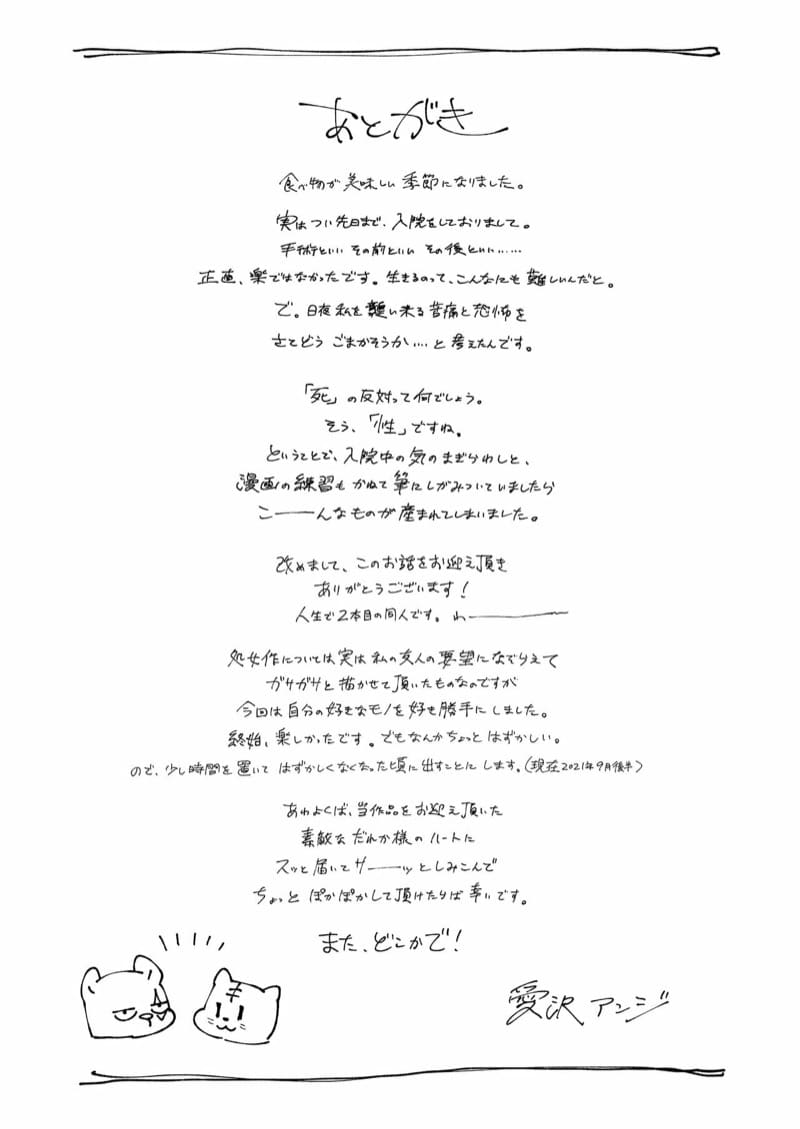 あとがき
食べ物が美味しい季節になりました。
実はつい先日まで、入院をしておりまして。
手術といい その前といい その後といい……
正直、楽ではなかったです。生きるのって、こんなにも難しいんだと。
で。日夜私を襲い来る苦痛と恐怖を
さてどう ごまかそうか…. と考えたんです。
「死」の反対って何でしょう。
そう、「性」ですね。
ということで、入院中の気のまぎらわしと、
漫画の練習も かねて筆にしがみついていましたら
こ――んなものが産まれてしまいました。
改めまして、このお話をお迎え頂き
ありがとうございます！
人生で2本目の同人です。わ――――
処女作については実は私の友人の要望になぞらえて
ガサガサと描かせて頂いたものなのですが
今回は自分の好きなモノを好き勝手にしました。
終始、楽しかったです。でもなんかちょっとはずかしい。
ので、少し時間を置いて はずかしくなくなった頃に出すことにします。(現在2021年9月後半)
あわよくば、当作品をお迎え頂いた
素敵な だれか様のハートに
スッと届いてサ――ッとしみこんで
ちょっと ぽかぽかして頂けたらば幸いです。
また、どこかで！
愛沢アンジ